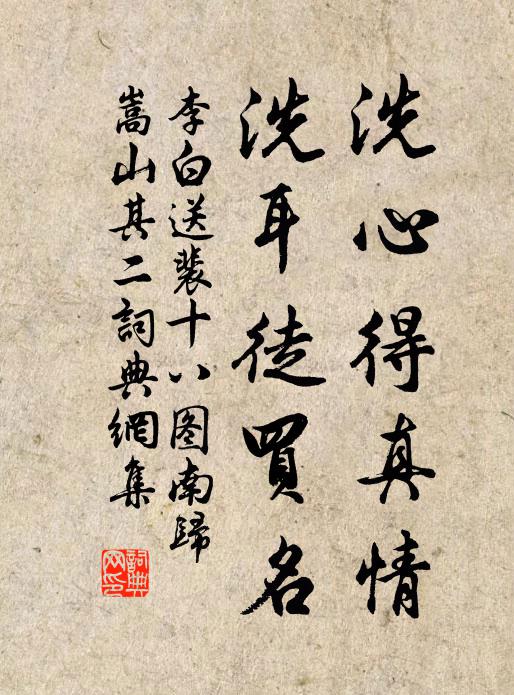 洗心得真情
洗耳徒買名
李白送裴十八图南歸
嵩山其二詞典網集
詞典网印